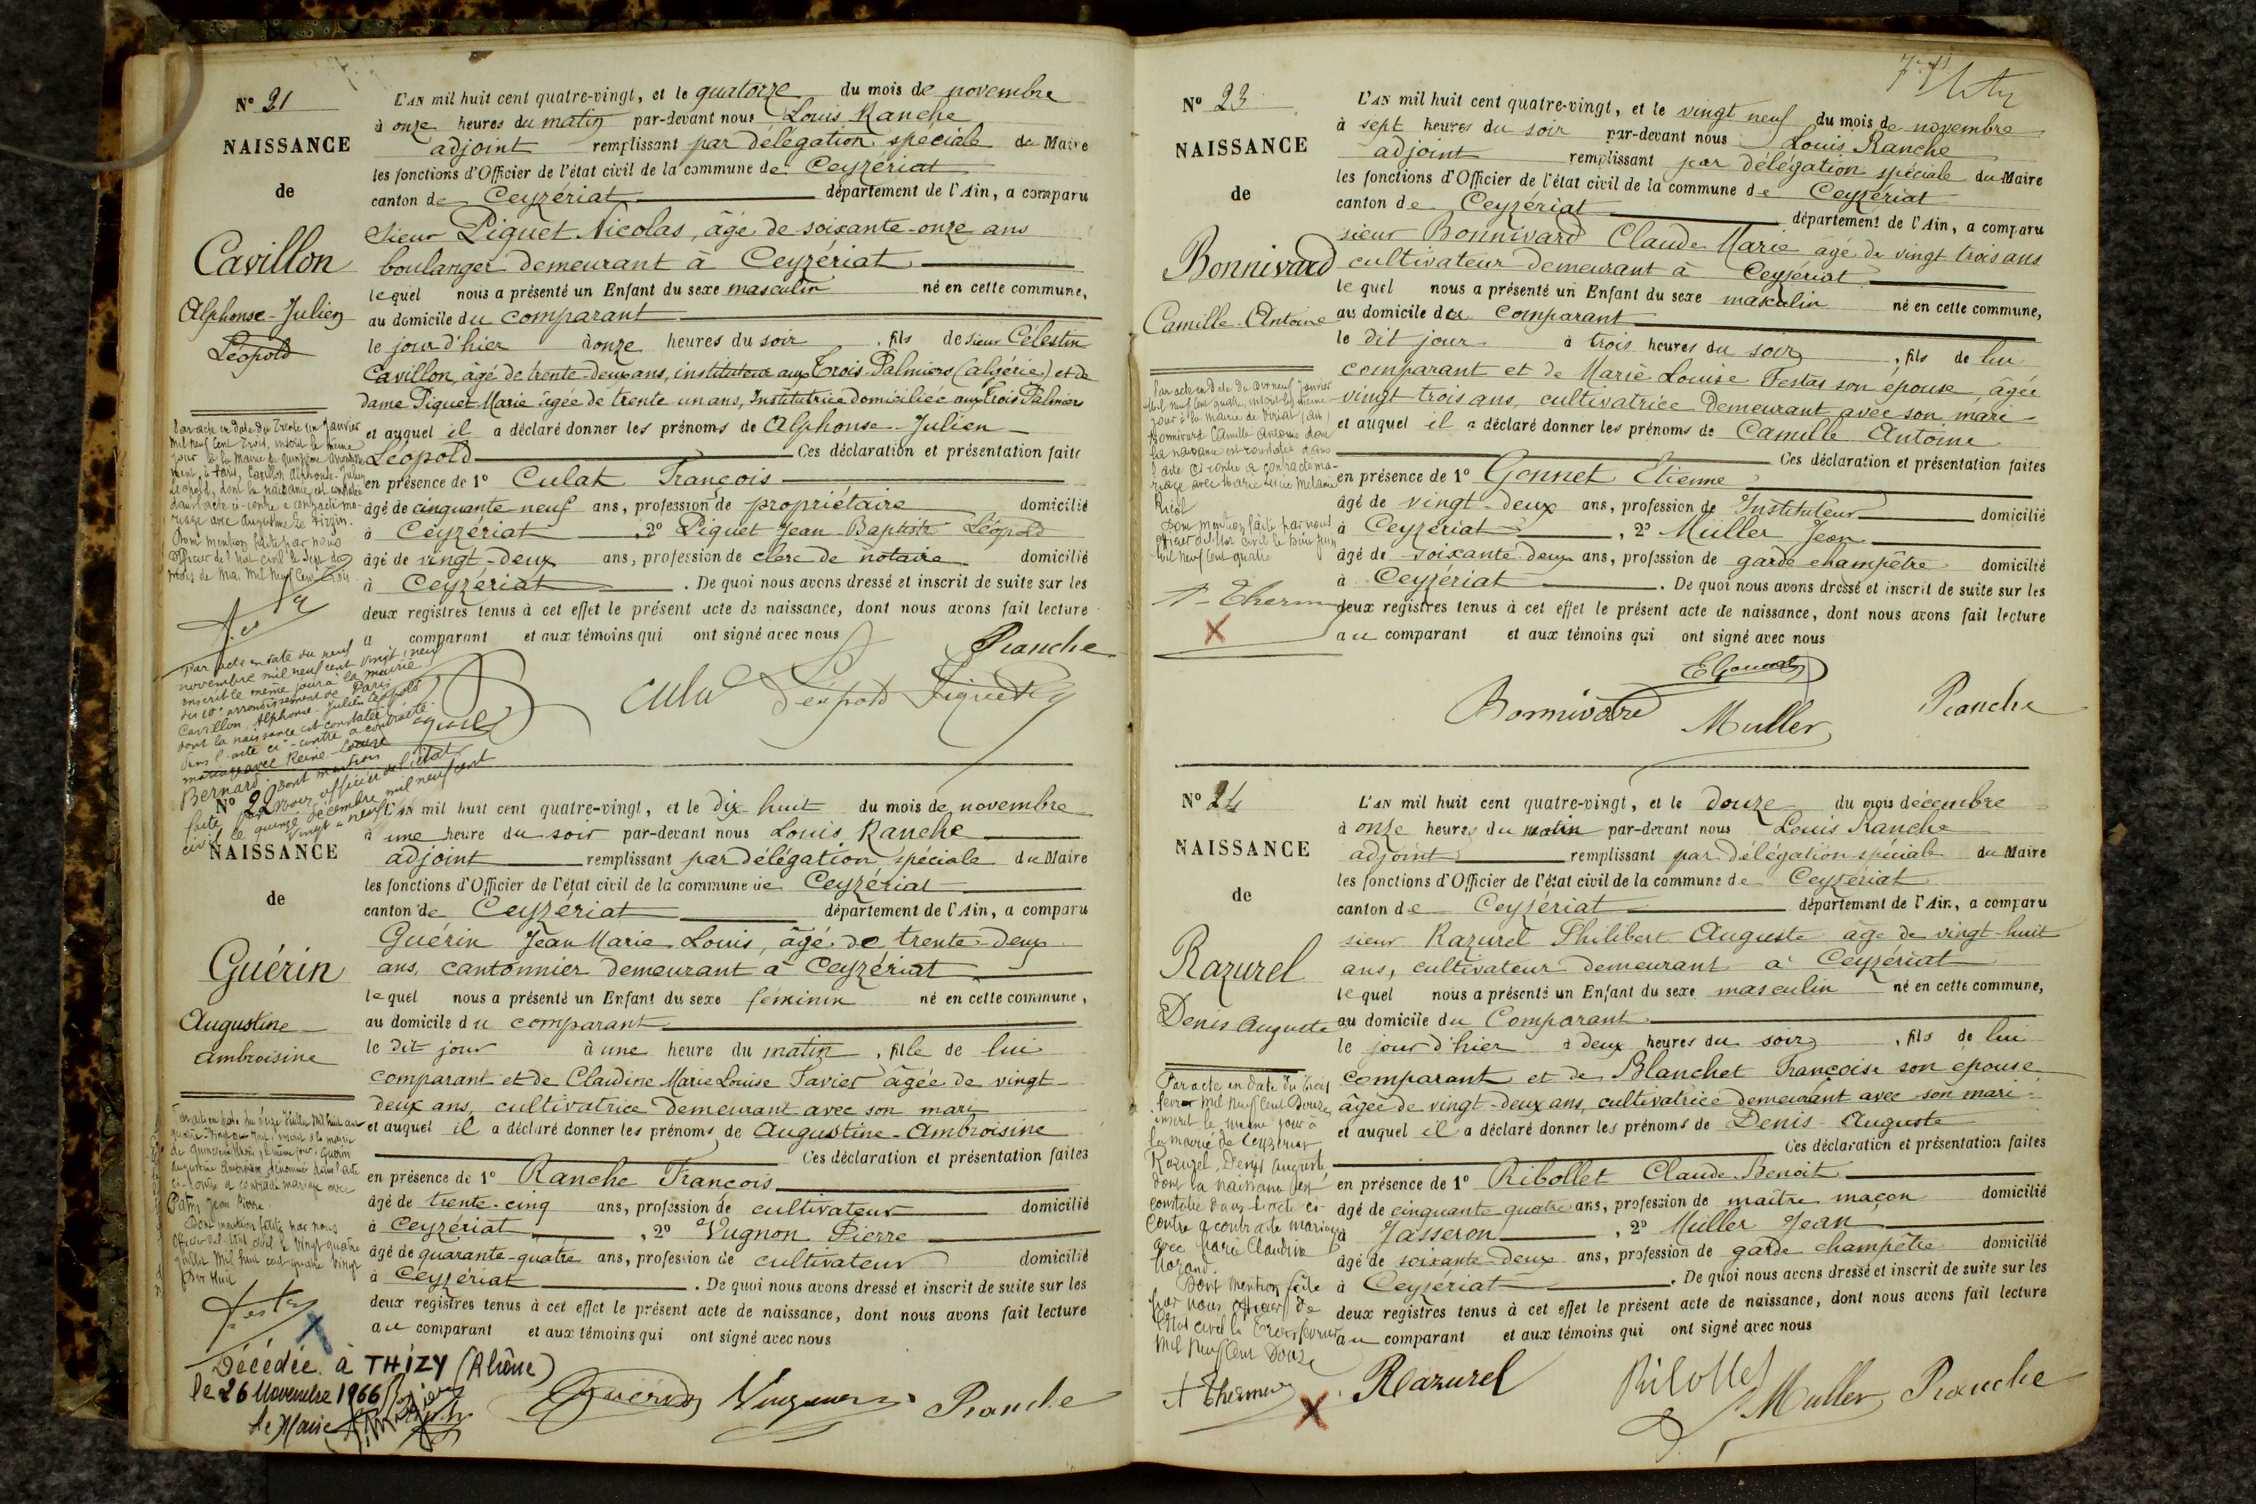 N° 21
NAISSANCE
de
Cavillon
Alphonse-Julien
Léopold
L'AN mil huit cent quatre-vingt, et le quatorze du mois de novembre
à onze heures du matin par-devant nous Louis Ranche
adjoint remplissant par délégation spéciale du Maire
les fonctions d'Officier de l'état civil de la commune de Ceyzériat
canton de Ceyzériat département de l'Ain, a comparu
Sieur Piguet Nicolas, âgé de soixante-onze ans
boulanger demeurant à Ceyzériat
lequel nous a présenté un Enfant du sexe masculin né en cette commune,
au domicile du comparant
le jour d'hier à onze heures du soir, fils de sieur Célestin
Cavillon, âgé de trente-deux ans, instituteur aux Trois-Palmiers (algérie) et de
dame Piguet Marie âgée de trente un ans, Institutrice domiciliée aux Trois Palmiers
et auquel il a déclaré donner les prénoms de Alphonse-Julien
Léopold Ces déclaration et présentation faite
en présence de 1° Culat François
âgé de cinquante neuf ans, profession de propriétaire domicilié
à Ceyzériat, 2° Piguet Jean Baptiste Léopold
âgé de vingt-deux ans, profession de clerc de notaire domicilié
à Ceyzériat. De quoi nous avons dressé et inscrit de suite sur les
deux registres tenus à cet effet le présent acte de naissance, dont nous avons fait lecture
a comparant et aux témoins qui ont signé avec nous
Ranche
Culat Léopold Piguet
Par acte en date du trente un Janvier
mil neuf cent trois, inscrit le même
jour à la Mairie du quinzième arrondisse
ment, à Paris, Cavillon Alphonse-Julien
Léopold, dont la naissance est constatée
dans l'acte ci-contre a contracté ma-
riage avec Augustine
Dont mention faite par nous
officier de l'état civil le
mois de Mai mil neuf cent trois
Par acte en date du neuf
novembre mil neuf cent vingt neuf
inscrit le même jour à la mairie
du arrondissement de Paris
Cavillon, Alphonse-Julien Léopold
dont la naissance est constatée
dans l'acte ci-contre a contracté
mariage avec Reine-Louise
Bernard. Dont mention
faite par nous officier de l'état
civil le quinze décembre mil neuf cent
vingt-neuf.
N° 22
NAISSANCE
de
Guérin
Augustine
Ambroisine
L'AN mil huit cent quatre-vingt, et le dix huit du mois de novembre
à une heure du soir par-devant nous Louis Ranche
adjoint remplissant par délégation spéciale du Maire
les fonctions d'Officier de l'état civil de la commune de Ceyzériat
canton de Ceyzériat département de l'Ain, a comparu
Guérin Jean Marie Louis, âgé de trente-deux
ans, cantonnier demeurant à Ceyzériat
lequel nous a présenté un Enfant du sexe féminin né en cette commune,
au domicile du comparant
le dit jour à une heure du matin, fille de lui
comparant et de Claudine Marie Louise Tavier âgée de vingt-
deux ans, cultivatrice demeurant avec son mari
et auquel il a déclaré donner les prénoms de Augustine-Ambroisine
Ces déclaration et présentation faites
en présence de 1° Ranche François
âgé de trente-cinq ans, profession de cultivateur domicilié
à Ceyzériat, 2° Vugnon Pierre
âgé de quarante-quatre ans, profession de cultivateur domicilié
à Ceyzériat. De quoi nous avons dressé et inscrit de suite sur les
deux registres tenus à cet effet le présent acte de naissance, dont nous avons fait lecture
au comparant et aux témoins qui ont signé avec nous
Guérin Vugnon Ranche
Guérin
Augustine Ambroisine dénommée dans l'acte
ci-contre a contracté mariage avec
Jean Pierre
Dont mention faite par nous
officier de l'état civil le vingt-quatre
Juillet mil huit cent quatre vingt
dix huit
Décédée à THIZY (Rhône)
le 26 Novembre 1966
Le Maire
N° 23
NAISSANCE
de
Bonnivard
Camille-Antoine
L'AN mil huit cent quatre-vingt, et le vingt neuf du mois de novembre
à sept heures du soir par-devant nous Louis Ranche
adjoint remplissant par délégation spéciale du Maire
les fonctions d'Officier de l'état civil de la commune de Ceyzériat
canton de Ceyzériat département de l'Ain, a comparu
sieur Bonnivard Claude Marie âgé de vingt trois ans
cultivateur demeurant à Ceyzériat
lequel nous a présenté un Enfant du sexe masculin né en cette commune,
au domicile du comparant
le dit jour à trois heures du soir, fils de lui
comparant et de Marie Louise Festas son épouse, âgée
vingt trois ans, cultivatrice demeurant avec son mari
et auquel il a déclaré donner les prénoms de Camille Antoine
Ces déclaration et présentation faites
en présence de 1° Gonnet Etienne
âgé de vingt-deux ans, profession de Instituteur domicilié
à Ceyzériat, 2° Müller Jean
âgé de soixante-deux ans, profession de garde champêtre domicilié
à Ceyzériat. De quoi nous avons dressé et inscrit de suite sur les
deux registres tenus à cet effet le présent acte de naissance, dont nous avons fait lecture
au comparant et aux témoins qui ont signé avec nous
E Gonnet
Bonnivard Muller Ranche
Par acte en date du dix neuf Janvier
mil neuf cent quatre, inscrit le même
jour à la mairie de Viriat (Ain)
Bonnivard Camille Antoine dont
la naissance est constatée dans
l'acte ci-contre a contracté ma-
riage avec Marie Mélanie
Dont mention faite par nous
officier de l'état civil le
mil neuf cent quatre
N° 24
NAISSANCE
de
Razurel
Denis Auguste
L'AN mil huit cent quatre-vingt, et le douze du mois décembre
à onze heures du matin par-devant nous Louis Ranche
adjoint remplissant par délégation spéciale du Maire
les fonctions d'Officier de l'état civil de la commune de Ceyzériat
canton de Ceyzériat département de l'Ain, a comparu
sieur Razurel Philibert Auguste âgé de vingt-huit
ans, cultivateur demeurant à Ceyzériat
lequel nous a présenté un Enfant du sexe masculin né en cette commune,
au domicile du Comparant
le jour d'hier à deux heures du soir, fils de lui
comparant et de Blanchet Françoise son epouse
âgée de vingt-deux ans, cultivatrice demeurant avec son mari
et auquel il a déclaré donner les prénoms de Denis-Auguste
Ces déclaration et présentation faites
en présence de 1° Ribollet Claude-Benoit
âgé de cinquante quatre ans, profession de maître maçon domicilié
à Jasseron, 2° Müller Jean
âgé de soixante-deux ans, profession de garde champêtre domicilié
à Ceyzériat. De quoi nous avons dressé et inscrit de suite sur les
deux registres tenus à cet effet le présent acte de naissance, dont nous avons fait lecture
au comparant et aux témoins qui ont signé avec nous
Razurel Ribollet Muller Ranche
Par acte en date du trois
fevrier mil neuf cent Douze,
inscrit le même jour à
la mairie de Ceyzériat
Razurel, Denis Auguste,
dont la naissance est
constatée dans l'acte ci-
contre a contracté mariage
avec Marie Claudine
Dont mention faite
par nous officier de
l'état civil le trois fevrier
mil neuf cent Douze